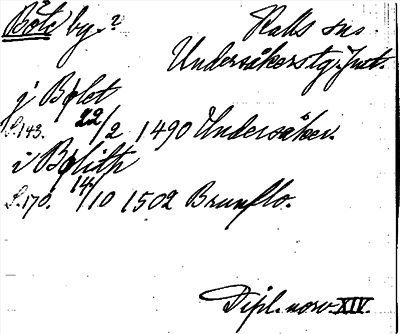 Böle by?
Kalls sn.
Undersåkers tg. Jmt.
j Bølet
S. 143. 22/2 1490 Undersåker.
i Bølith
S. 170. 14/10 1502 Brunflo.
Dipl. norv. XIV.